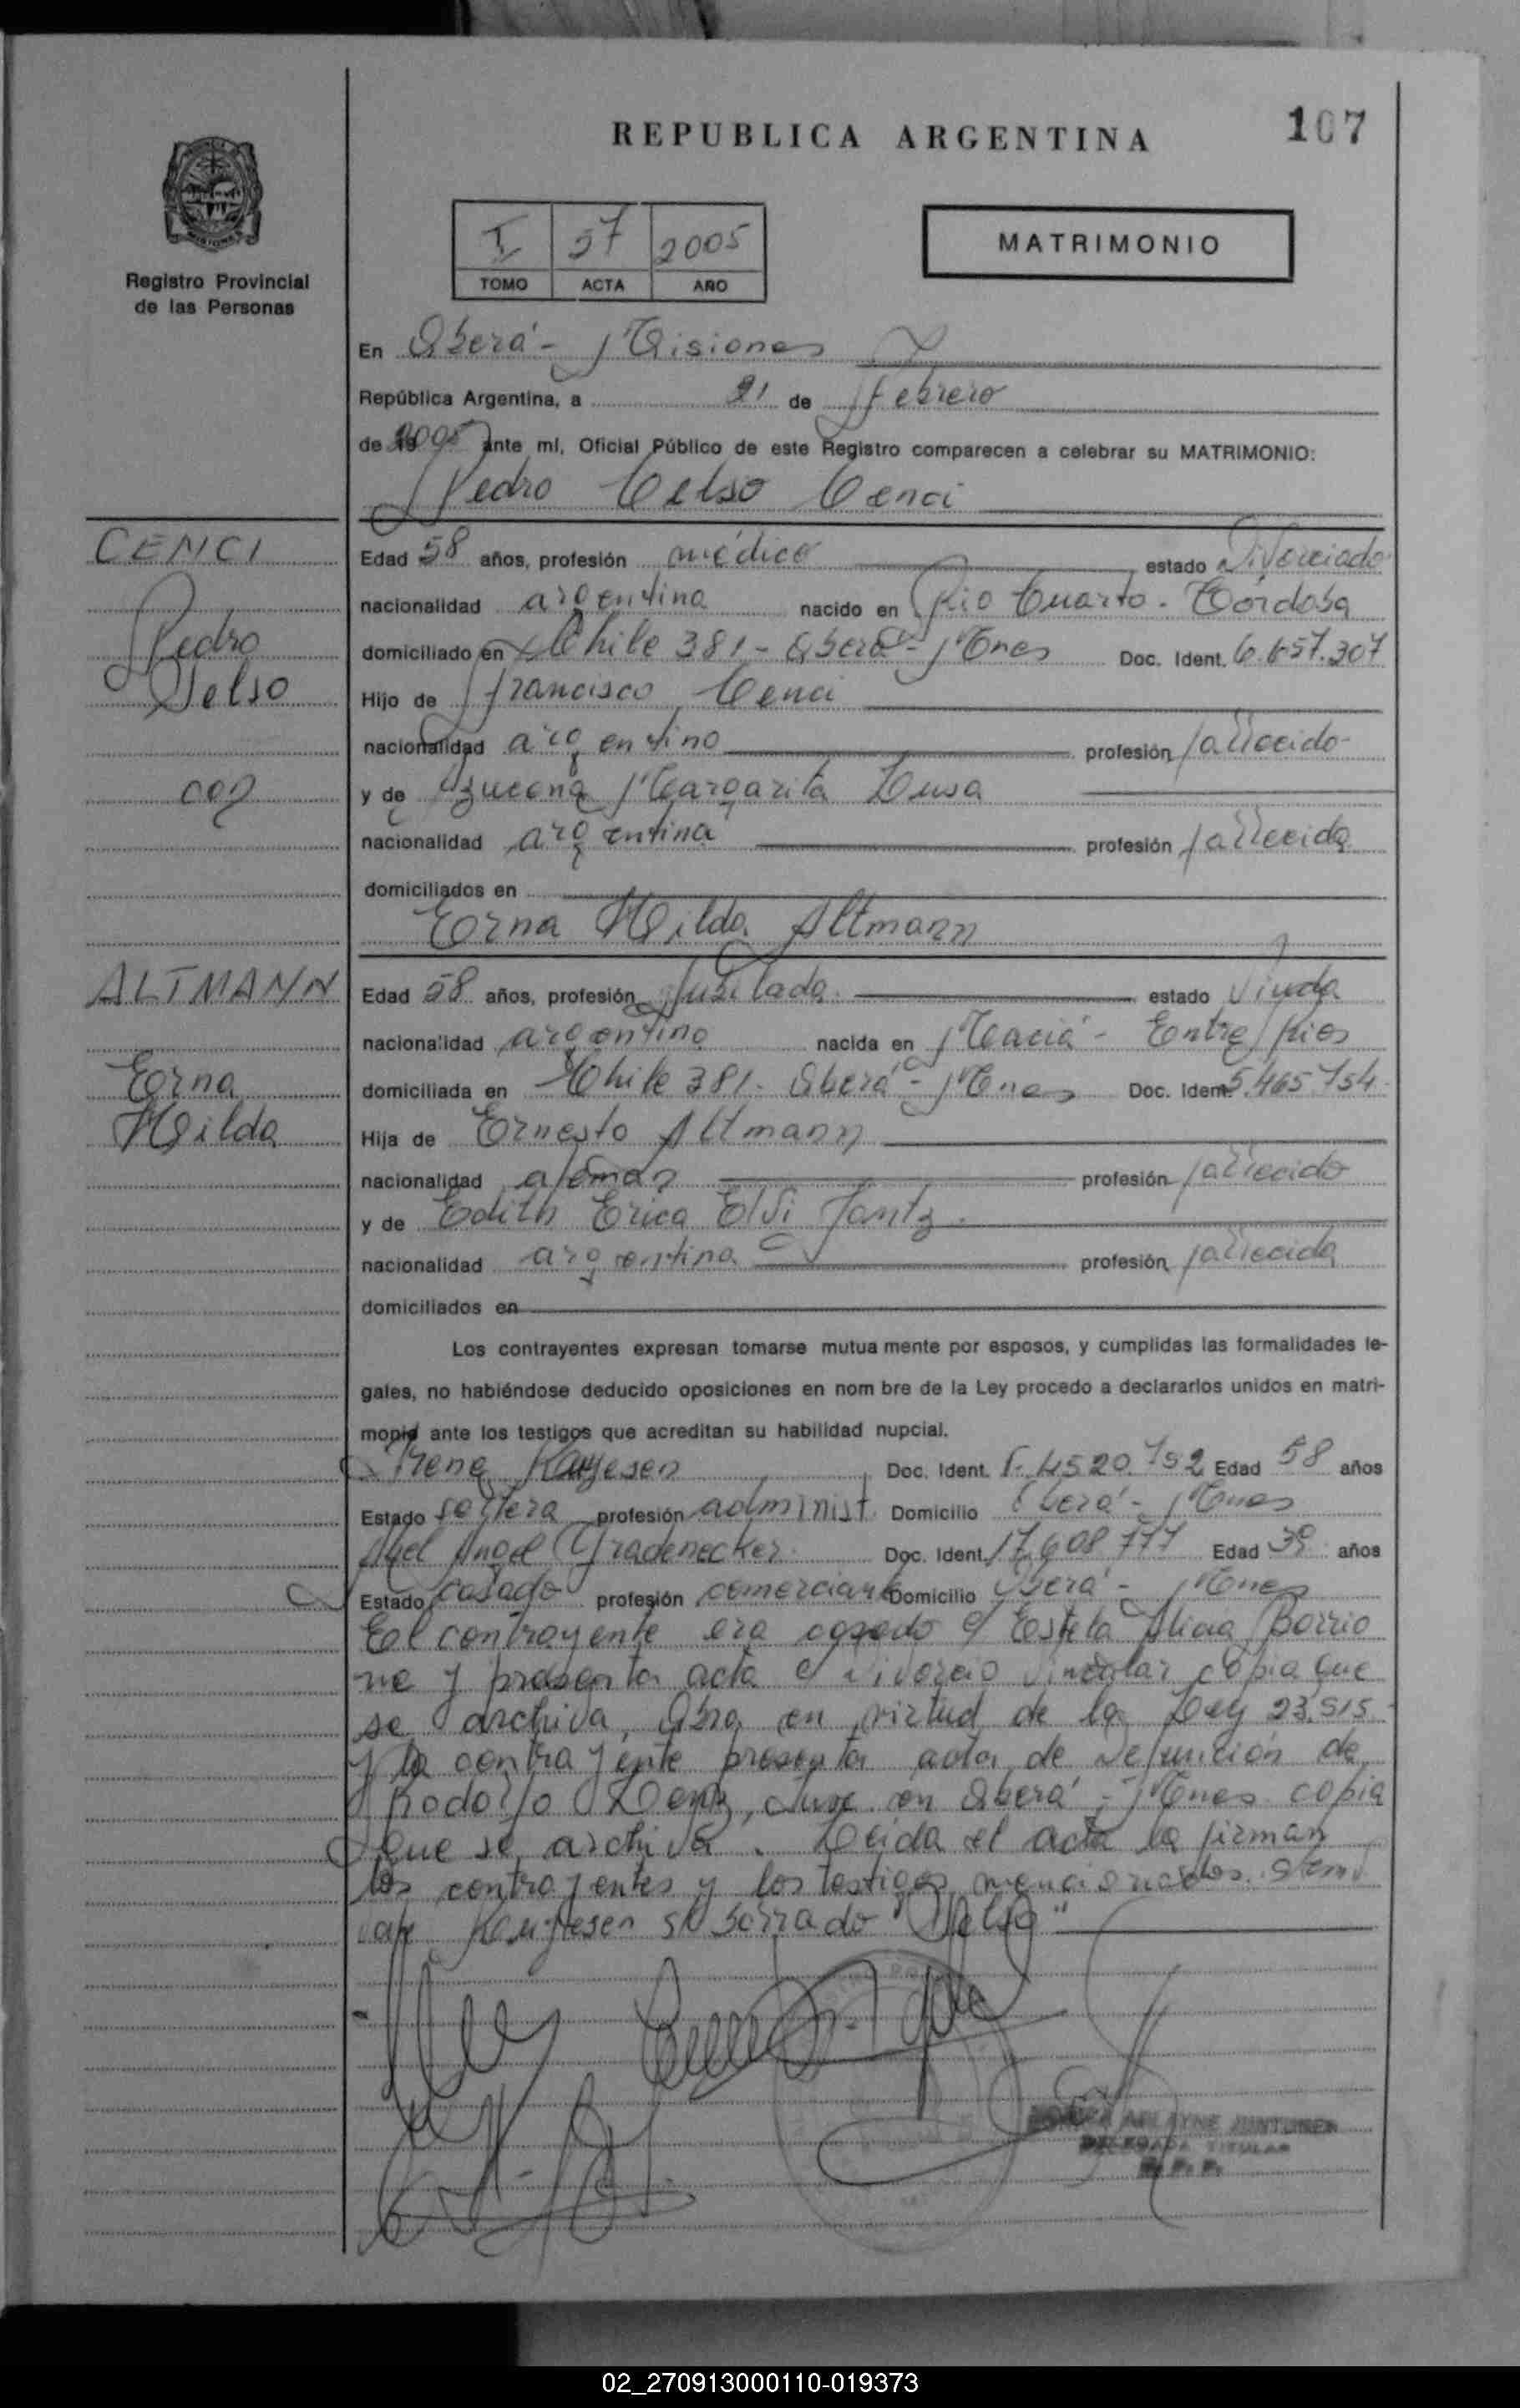 107
REPUBLICA ARGENTINA
I 57 2005
TOMO ACTA AÑO
MATRIMONIO
Registro Provincial
de las Personas
En Oberá - Misiones
República Argentina, a 21 de Febrero
de 2005 ante mí, Oficial Público de este Registro comparecen a celebrar su MATRIMONIO:
Pedro Celso Cenci
CENCI
Pedro
Celso
con
ALTMANN
Erna
Hilda
Edad 58 años, profesión médico estado Divorciado
nacionalidad argentina nacido en Río Cuarto - Córdoba
domiciliado en Chile 381 - Oberá - Mnes Doc. Ident. 6.657.307
Hijo de Francisco Cenci
nacionalidad argentino profesión fallecido
y de Azucena Margarita
nacionalidad argentina profesión fallecida
domiciliados en
Erna Hilda Altmann
Edad 58 años, profesión Jubilada estado Viuda
nacionalidad argentina nacida en Maciá - Entre Ríos
domiciliada en Chile 381 - Oberá - Mnes Doc. Ident. 5.465.754
Hija de Ernesto Altmann
nacionalidad alemán profesión fallecido
y de Edith Erica Elsi Jantz
nacionalidad argentina profesión fallecida
domiciliados en
Los contrayentes expresan tomarse mutua mente por esposos, y cumplidas las formalidades le-
gales, no habiéndose deducido oposiciones en nom bre de la Ley procedo a declararlos unidos en matri-
monio ante los testigos que acreditan su habilidad nupcial.
Irene Doc. Ident. F. 4520.752 Edad 58 años
Estado soltera profesión administ. Domicilio Oberá - Mnes
Angel Gradenecker Doc. Ident. 17.608.777 Edad 39 años
Estado casado profesión comerciante Domicilio Oberá - Mnes
El contrayente era casado c/ Estela Alicia Borrio
ne y presenta acta c/ divorcio vincular copia que
se archiva, Obra en virtud de la Ley 23.515
y la contrayente presenta acta de Defunción de
Rodolfo en Oberá - Mnes copia
que se archiva. Leída el acta la firman
los contrayentes y los testigos mencionados.
borrado "Celso"
DELEGADA TITULAR
R. P. P.
02_270913000110-019373